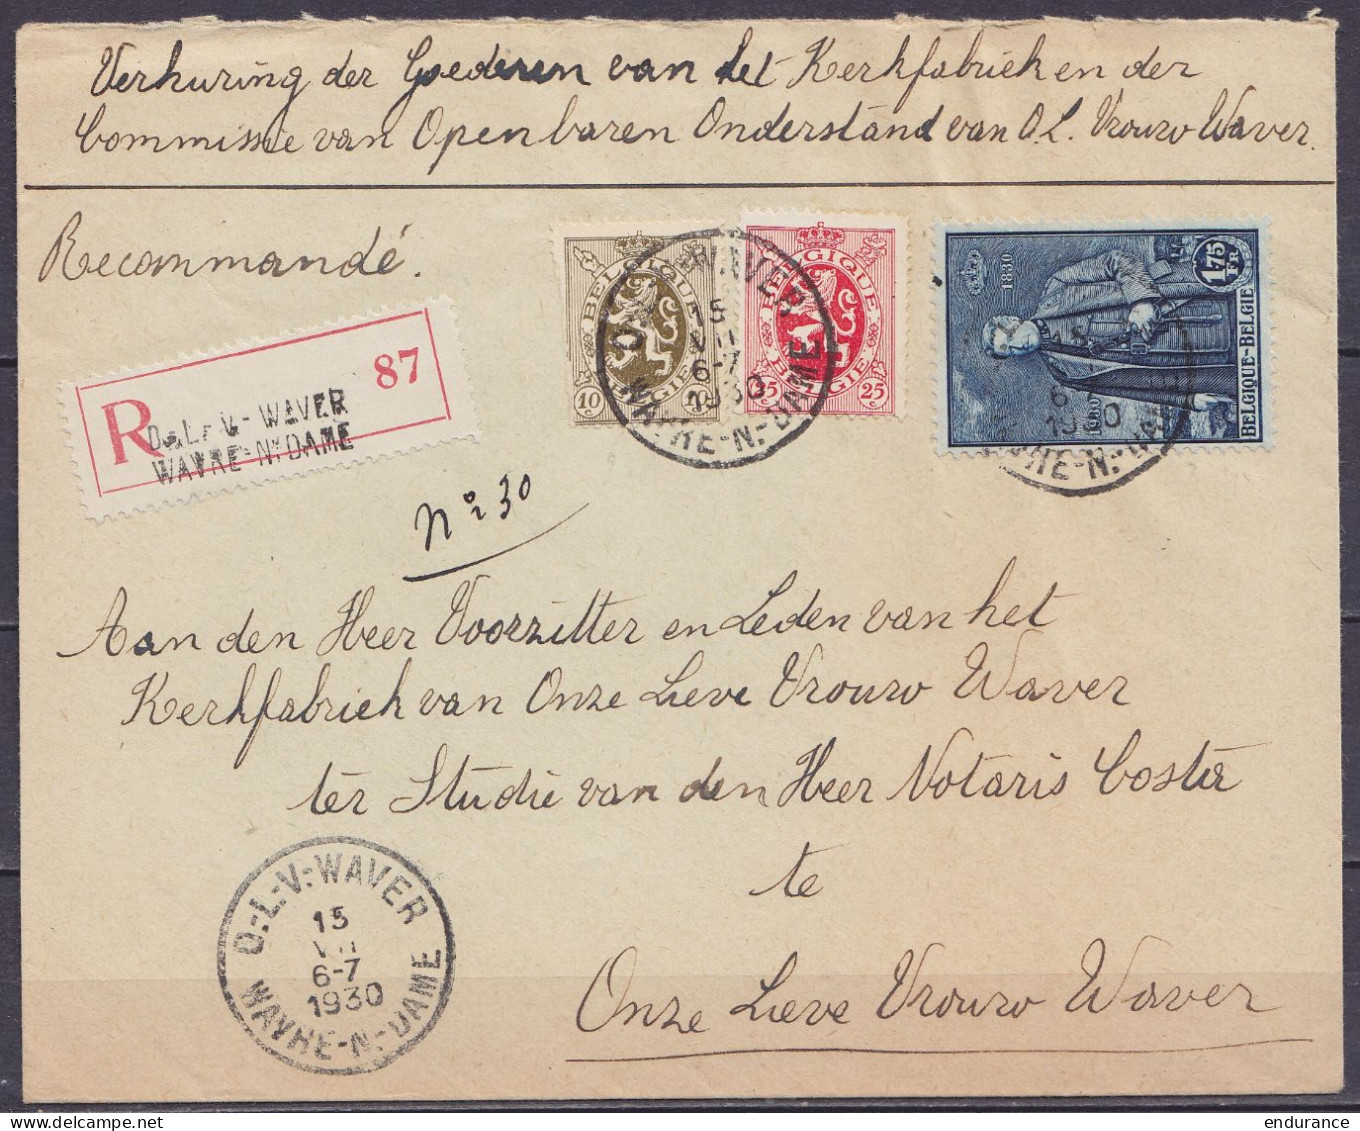 Verhuring der Goederen van het Kerkfabriek en der
Commissie van Openbaren Onderstand van O.L. Vrouw Waver.
Recommandé.
R 87
O.-L.-V.-WAVER
WAVRE-N.-DAME
BELGIQUE
BELGIE
10 c
10 c
BELGIQUE
BELGIE
25 c
25 c
1830
1930
1.75 FR
BELGIQUE-BELGIE
WAVER
15
VII
6-7
1930
WAVRE-N.-DAME
1930
WAVRE-N.-DA
No 30
Aan den Heer Voorzitter en Leden van het
Kerkfabriek van Onze Lieve Vrouw Waver
ter Studie van den Heer Notaris Coster
te
Onze Lieve Vrouw Waver
O.-L.-V.-WAVER
15
VII
6-7
1930
WAVRE-N.-DAME
endurance